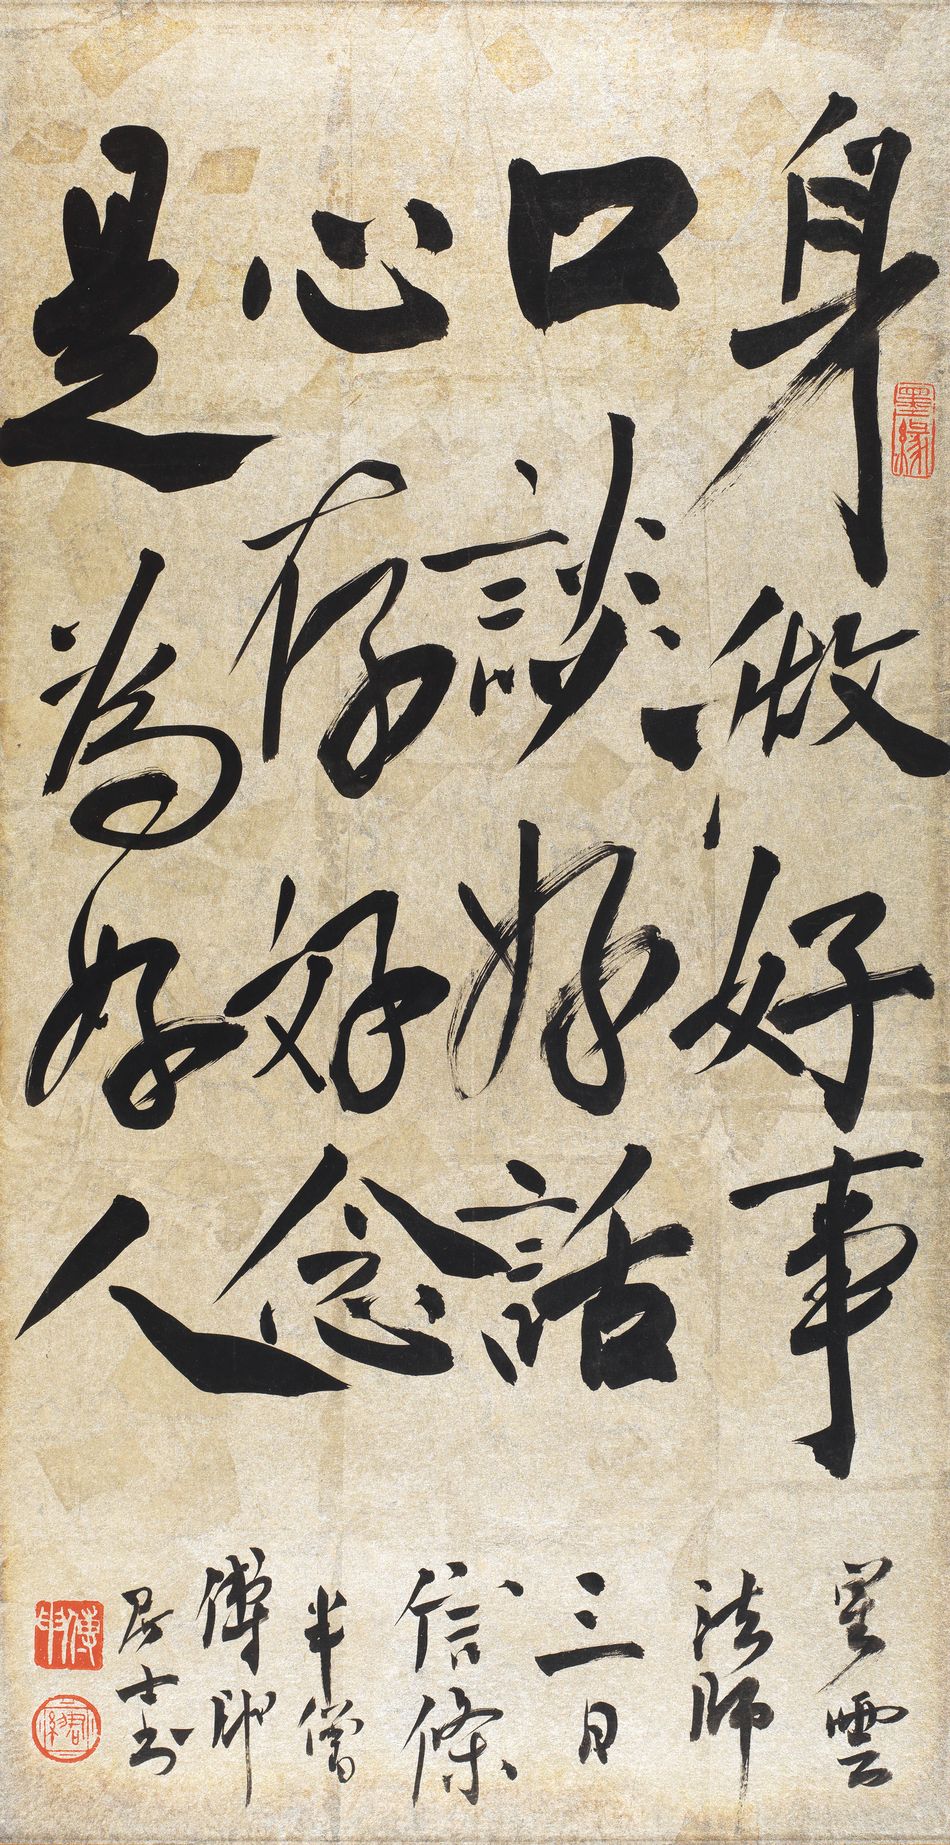 身做好事
口談好話
心存好念
是為好人
星雲
法師
三日
信條
半僧
傅申
居士書
墨緣
傅申